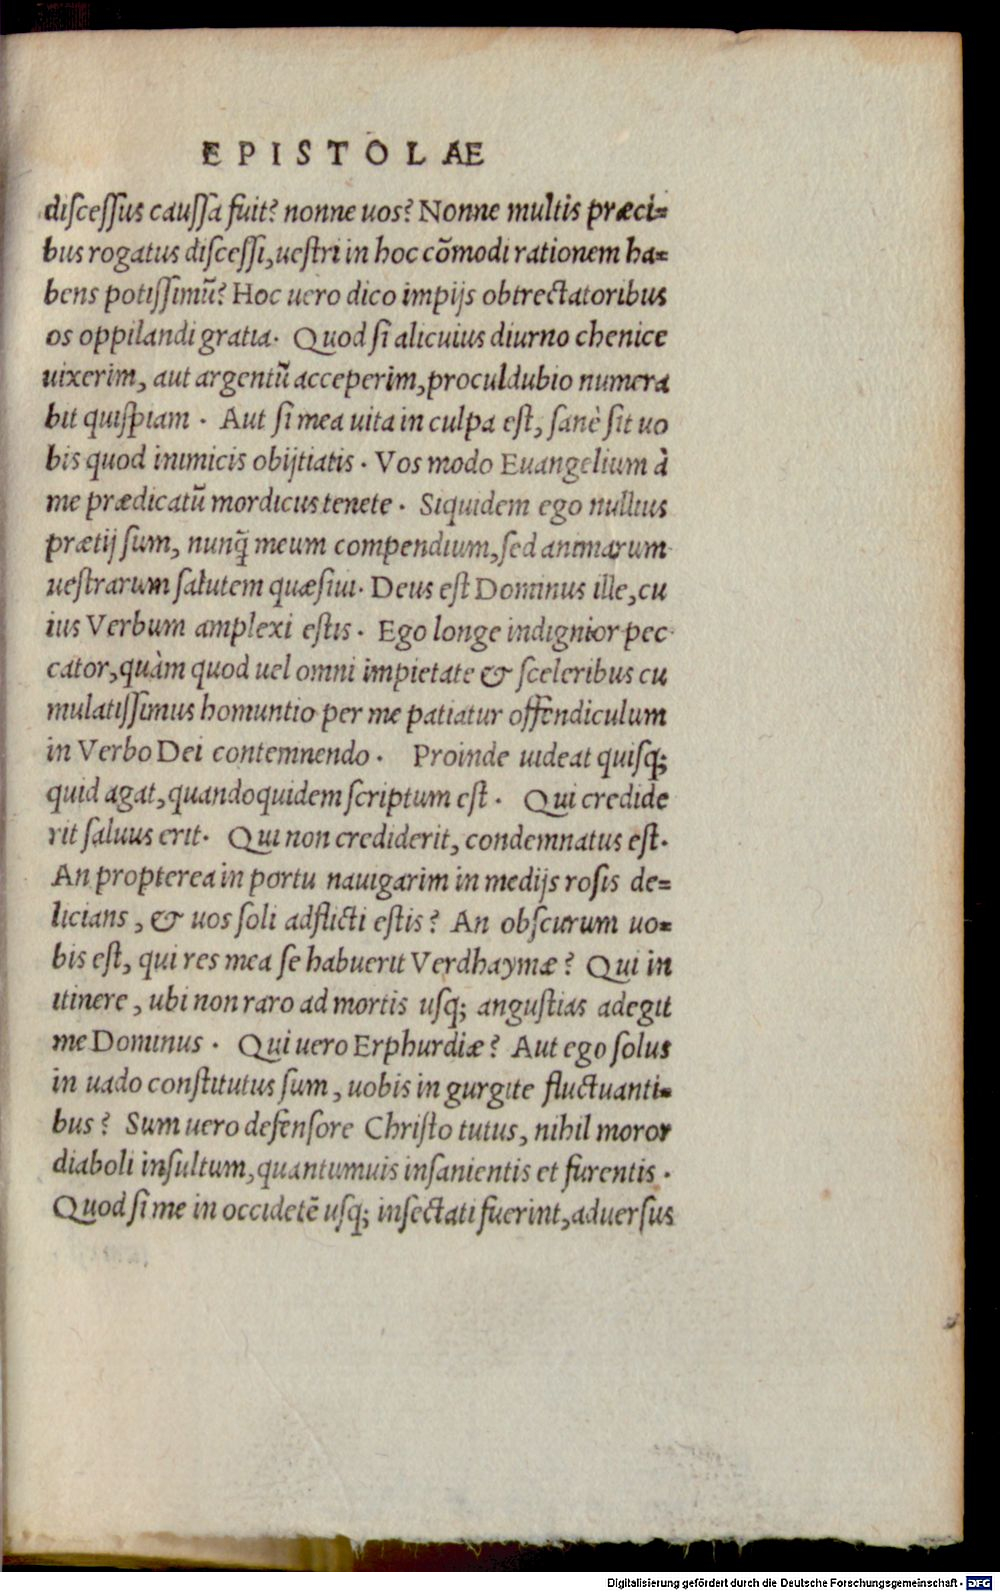 EPISTOLAE
discessus caussa fuit? nonne uos? Nonne multis præci=
bus rogatus discessi, uestri in hoc cōmodi rationem ha=
bens potissimū? Hoc uero dico impijs obtrectatoribus
os oppilandi gratia. Quod si alicuius diurno chenice
uixerim, aut argentū acceperim, proculdubio numera
bit quispiam. Aut si mea uita in culpa est, sanè sit uo
bis quod inimicis obijtiatis. Vos modo Euangelium à
me prædicatū mordicus tenete. Siquidem ego nullius
prætij sum, nunq̃ meum compendium, sed animarum
uestrarum salutem quæsiui. Deus est Dominus ille, cu
ius Verbum amplexi estis. Ego longe indignior pec
cator, quàm quod uel omni impietate & sceleribus cu
mulatissimus homuntio per me patiatur offendiculum
in Verbo Dei contemnendo. Proinde uideat quisq;
quid agat, quandoquidem scriptum est. Qui credide
rit saluus erit. Qui non crediderit, condemnatus est.
An propterea in portu nauigarim in medijs rosis de=
licians, & uos soli adflicti estis? An obscurum uo=
bis est, qui res mea se habuerit Verdhaymæ? Qui in
itinere, ubi non raro ad mortis usq; angustias adegit
me Dominus. Qui uero Erphurdiæ? Aut ego solus
in uado constitutus sum, uobis in gurgite fluctuanti=
bus? Sum uero defensore Christo tutus, nihil moror
diaboli insultum, quantumuis insanientis et furentis.
Quod si me in occidetē usq; insectati fuerint, aduersus
Digitalisierung gefördert durch die Deutsche Forschungsgemeinschaft - DFG